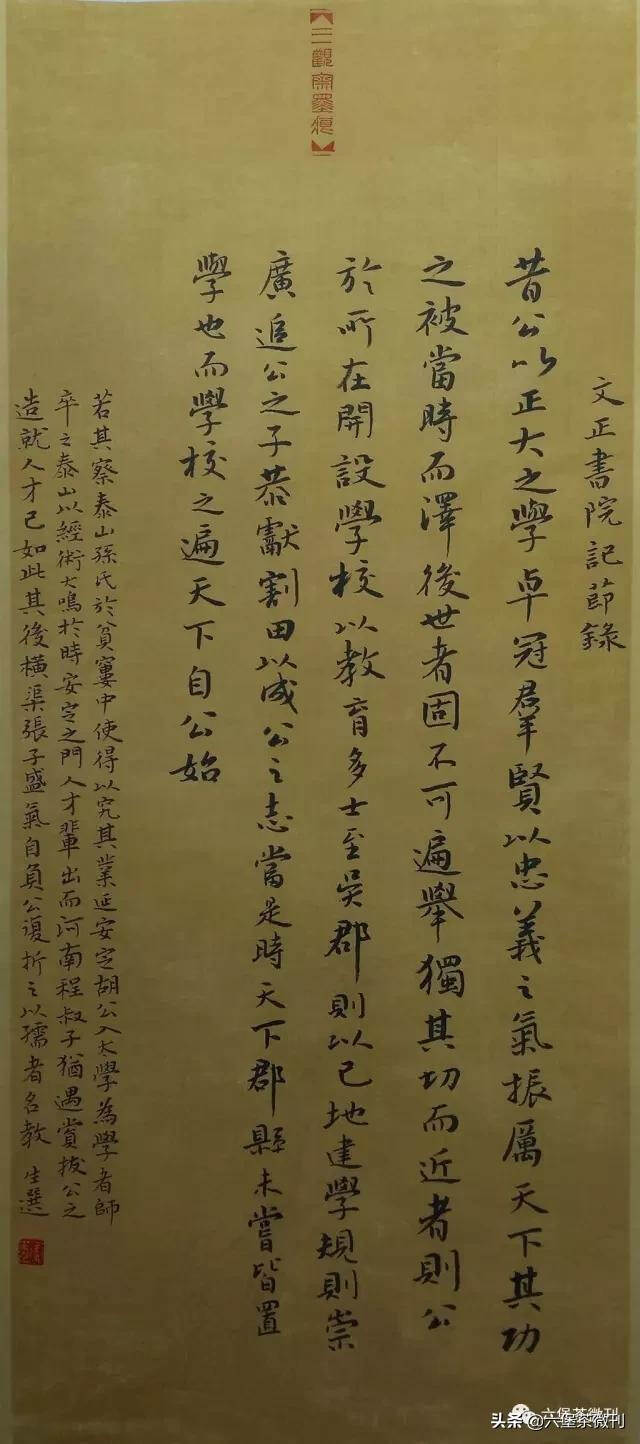 三觀齋墨痕
文正書院記節錄
昔公以正大之學卓冠羣賢以忠義之氣振厲天下其功
之被當時而澤後世者固不可遍舉獨其切而近者則公
於所在開設學校以教育多士至吳郡則以己地建學規則崇
廣追公之子恭獻割田以成公之志當是時天下郡縣未嘗皆置
學也而學校之遍天下自公始
若其察泰山孫氏於貧窶中使得以究其業延安定胡公入太學為學者師
卒之泰山以經術大鳴於時安定之門人才輩出而河南程叔子猶遇賞拔公之
造就人才已如此其後橫渠張子盛氣自負公復折之以儒者名教 生選
六堡茶微刊
头条@六堡茶微刊